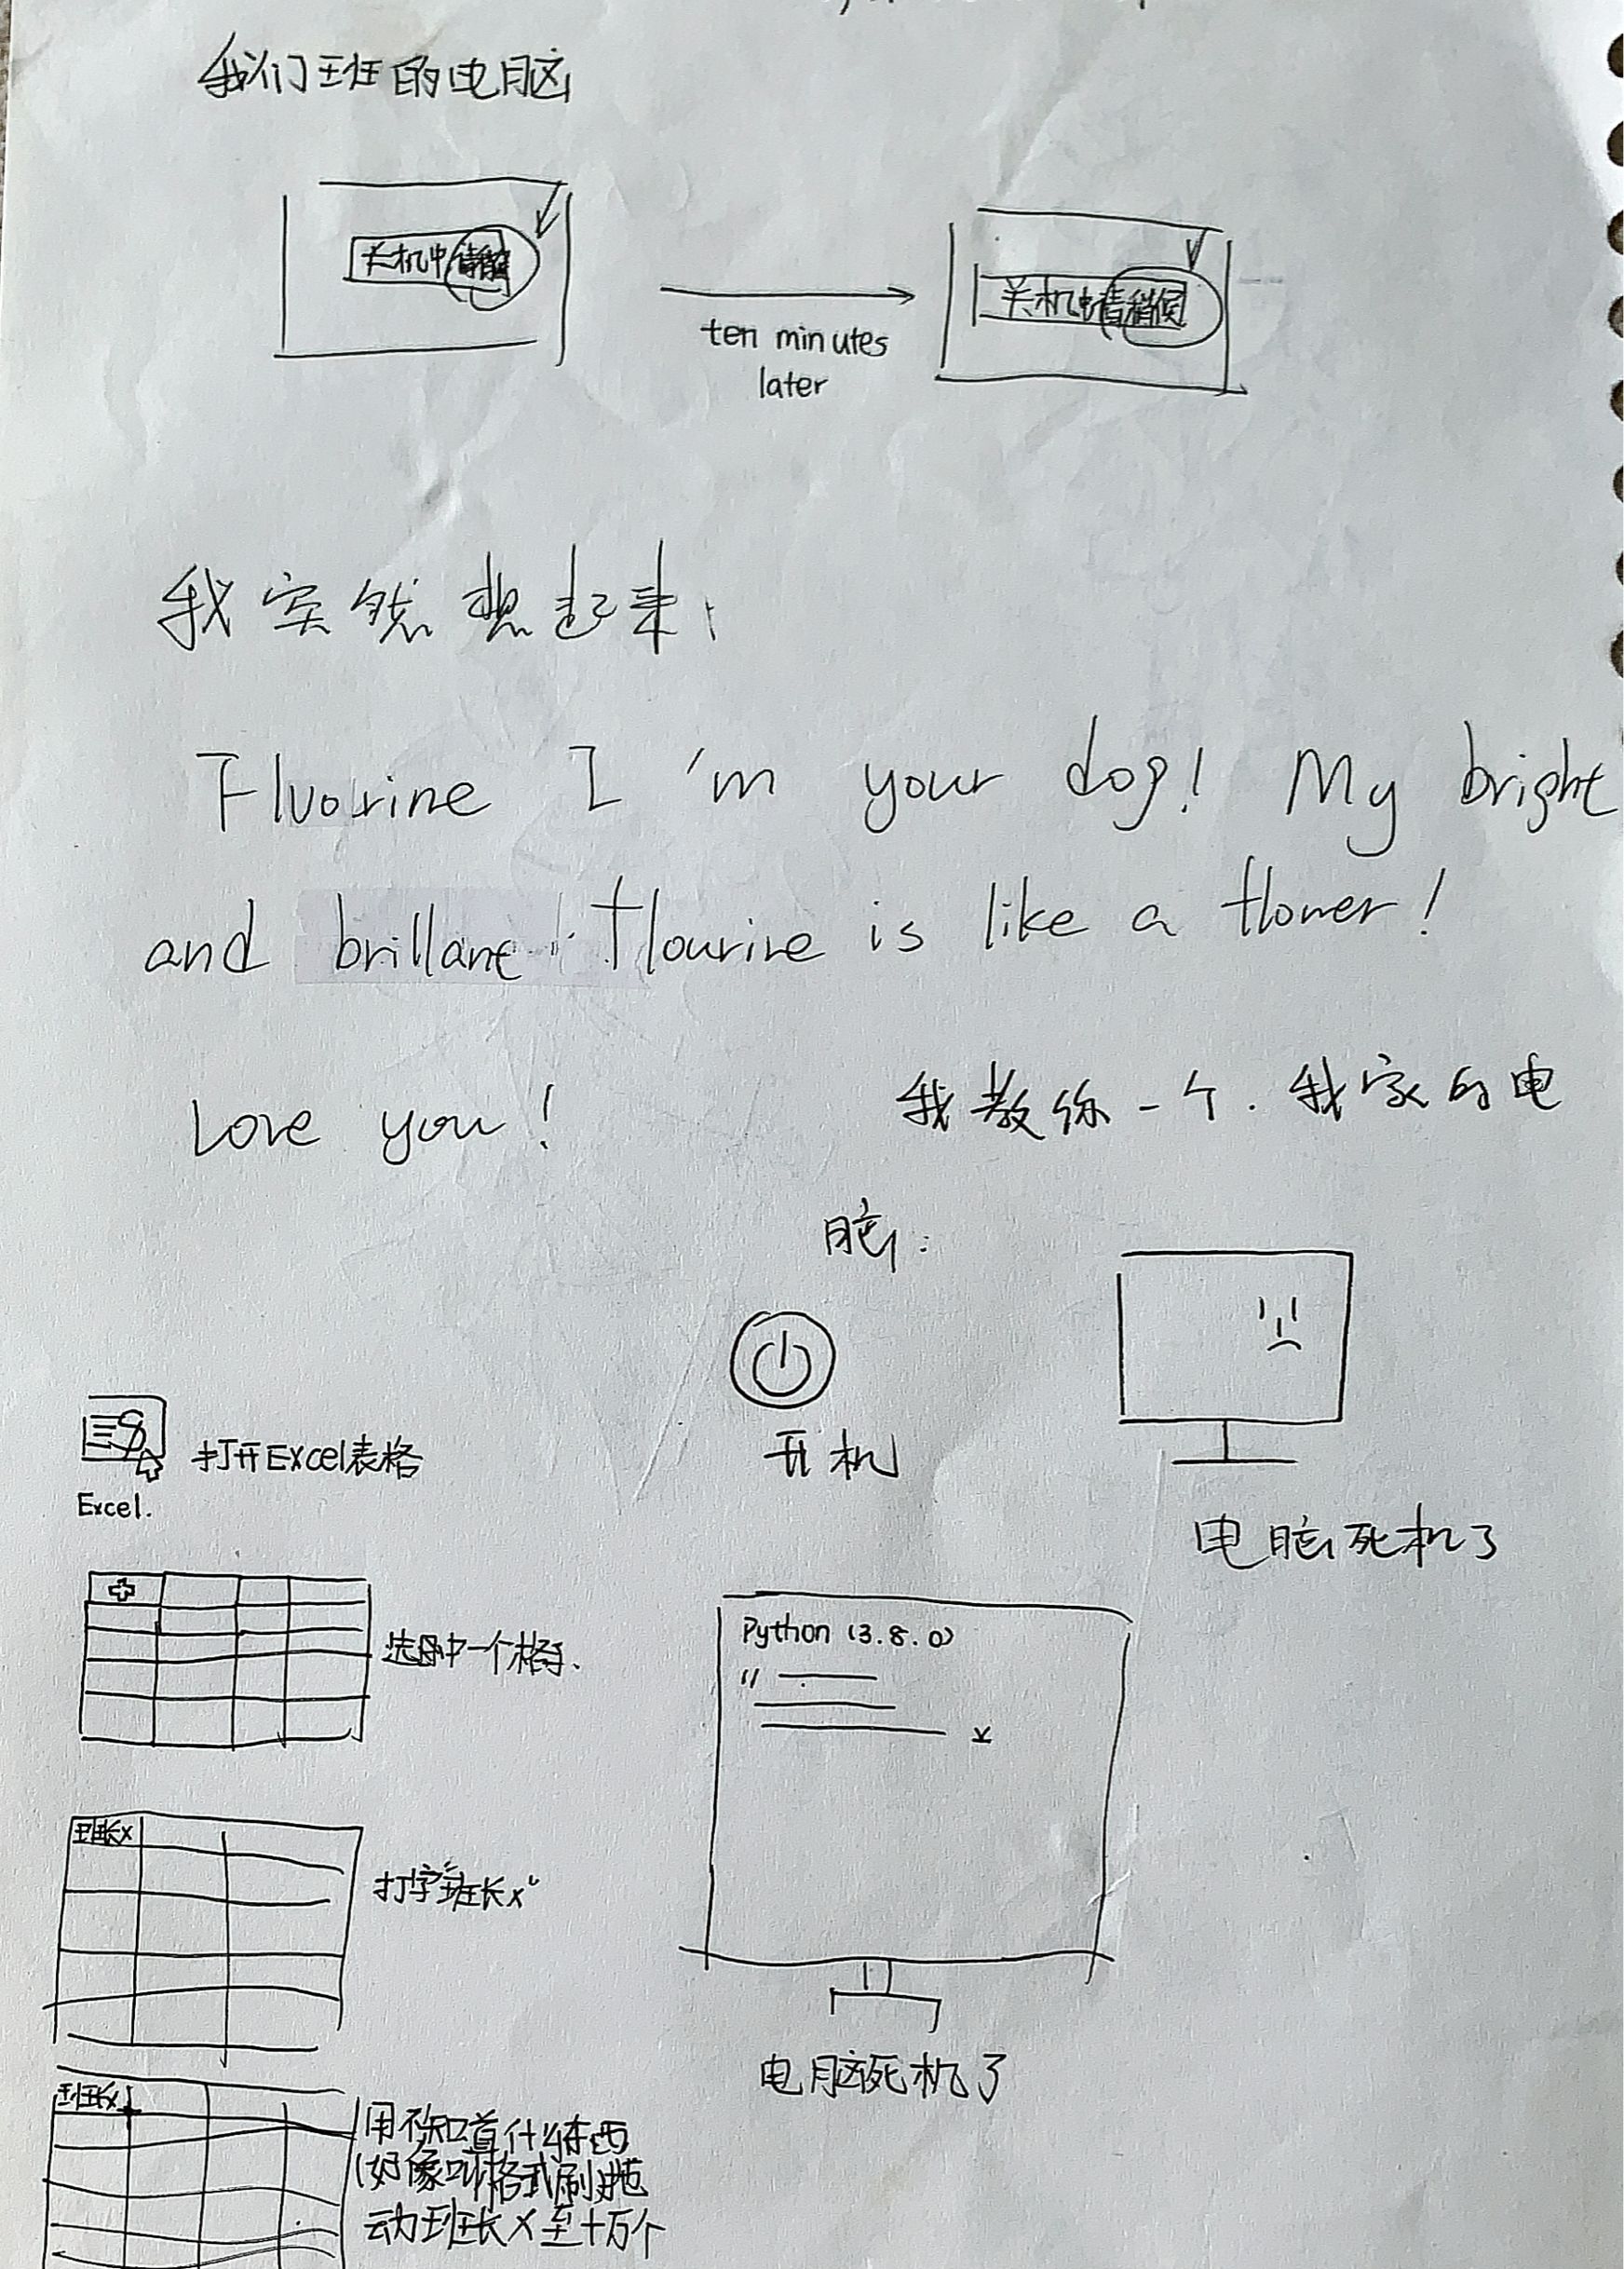 我们班的电脑
关机中请稍候
ten minutes
later
关机中请稍候
我突然想起来:
Fluorine I'm your dog! My bright
and brillant flourine is like a flower!
Love you!
我教你一个.我家的电
脑:
开机
电脑死机了
打开Excel表格
Excel.
选中一个格子.
Python (3.8.0)
班长x
打字"班长x"
电脑死机了
班长x
用不知道什么东西
(好像叫格式刷)拖
动班长x至十万个